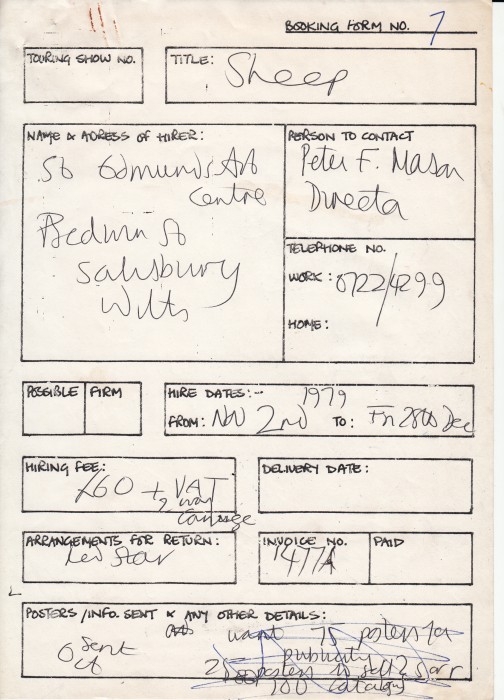 BOOKING FORM NO. 7
TOURING SHOW NO.
TITLE: Sheep
NAME & ADRESS OF HIRER:
St Edmunds Art
Centre
Bedwin St
Salisbury
Wilts
PERSON TO CONTACT
Peter F. Mason
Director
TELEPHONE NO.
WORK: 0722/4299
HOME:
POSSIBLE
FIRM
HIRE DATES:- 1979
FROM: Nov 2nd TO: Fri 28th Dec
HIRING FEE:
£60 + VAT
2 way
carriage
DELIVERY DATE:
ARRANGEMENTS FOR RETURN:
Red Star
INVOICE NO.
1477A
PAID
POSTERS/INFO. SENT & ANY OTHER DETAILS:
Sent
Oct
want 75 posters for
publicity
posters to sell
100 catalogues